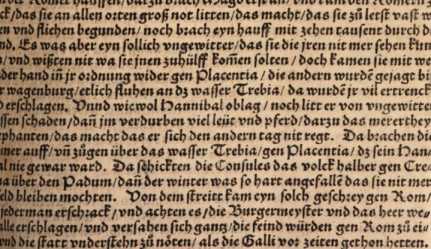 ck/das sie an allen orten groß not litten/das macht/das sie zů letst vast w
en vnd fliehen begunden/noch brach eyn hauff mit zehen tausent durch d
nd. Es was aber eyn sollich vngewitter/das sie die jren nit mer sehen kun
/vnd wißten nit wa sie jnen zuhülff kom̃en solten/doch kamen sie mit we
der hand in jr ordnung wider gen Placentia/die andern wurdẽ gejagt bi
wagenburg/etlich fluhen an dz wasser Trebia/da wurdẽ jr vil ertrenck
d erschlagen. Vnnd wiewol Hannibal oblag/noch litt er von vngewitte
ssen schaden/dañ jm verdurben viel leüt vnd pferd/darzu das mererthey
phanten/das macht das er sich den andern tag nit regt. Da brachen die
iner auff/vñ zůgen über das wasser Trebia/gen Placentia/dz sein Han
al nie gewar ward. Da schickten die Consules das volck halber gen Cre
a über den Padum/dañ der winter was so hart angefallẽ das sie nit mer
eld bleiben mochten. Von dem streitt kam eyn solch geschrey gen Rom/
jederman erschrack/vnd achten es/die Burgermeyster vnd das heer we
alle erschlagen/vnd versahen sich gantz/die feind würden gen Rom zů ei
vnd die statt vnderstehn zů nöten/als die Galli vor zeiten gethon hetten.